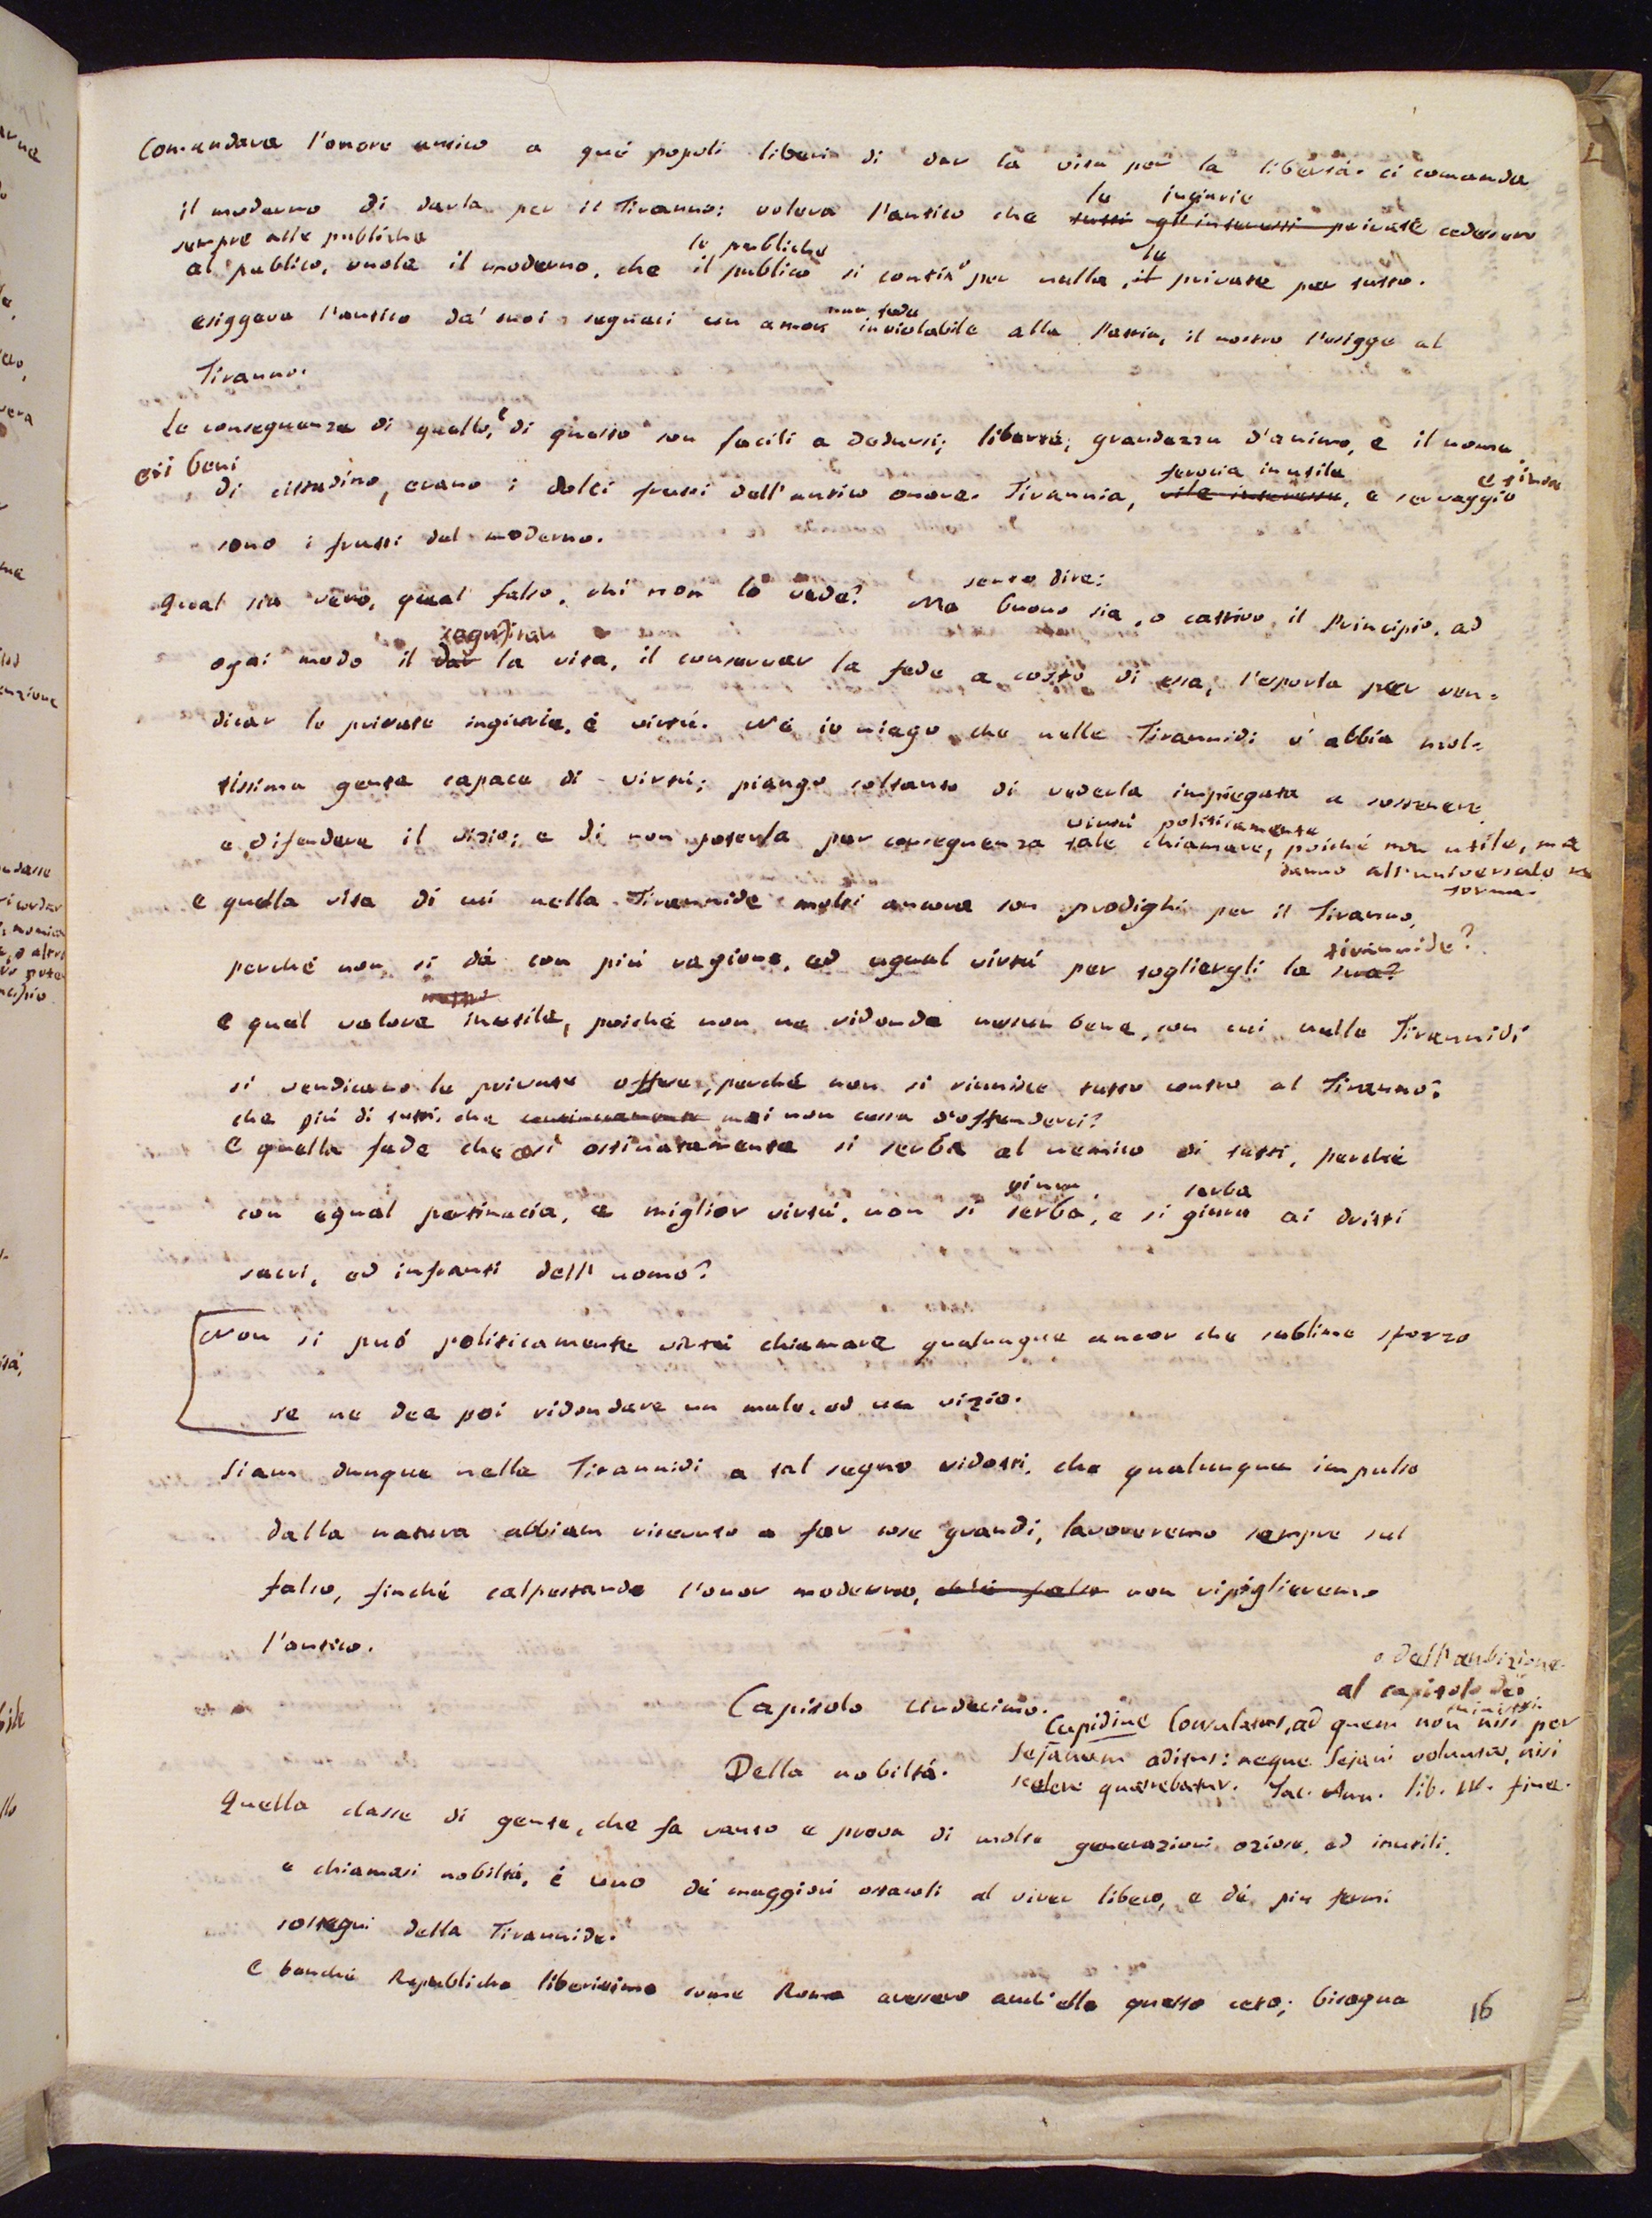 Comandava l'onore antico a qué popoli liberi di dar la vita per la libertá. ci comanda
le ingiurie
il moderno di darla per il Tiranno: voleva l'antico che tutti gli interessi private cedessero
sempre alle publiche
le publiche
le
al publico, vuole il moderno, che il publico si conti per nulla, il private per tutto.
una fede
esiggeva l'antico da' suoi seguaci un amor inviolabile alla Patria, il nostro l'esigge al
Tiranno.
Le conseguenze di quello, e di questo son facili a dedursi; libertá, grandezza d'animo, e il nome
ed i beni
ferocia inutile
di cittadino, erano i dolci frutti dell'antico onore. Tirannia, vile interesse, e servaggio
sono i frutti del moderno.
senso dire:
Qual sia vero, qual falso, chi non lo vede? Ma buono sia, o cattivo, il Principio, ad
ogni modo il dar la vita, il conservar la fede a costo di essa, l'esporla per ven=
dicar le private ingiurie, é virtú. Né io niego che nelle Tirannidi v'abbia mol=
tissima gente capace di virtú; piango soltanto di vederla impiegata a sostenere
virtú politicamente
e difendere il vizio; e di non poterla per conseguenza tale chiamare, poiché non utile, ma
danno all'universale ne
torna.
e quella vita di cui nella Tirannide molti ancora son prodighi per il Tiranno,
tirannide?
perché non si dá con piú ragione, ed ugual virtú per togliergli la sua?
e quel valore inutile, poiché non ne ridonda nessun bene, con cui nelle Tirannidi
si vendicano le private offese, perché non si riunisce tutto contro al Tiranno?
che piú di tutti, che continuamente mai non cessa d'offenderci?
e quella fede che cosí ostinatamente si serba al nemico di tutti, perché
giura
serba
con egual pertinacia, e miglior virtú, non si serba, e si giura ai dritti
sacri, ed infranti dell'uomo?
Non si puó politicamente virtú chiamare qualunque ancor che sublime sforzo
se ne dee poi ridondare un male, ed un vizio.
Siam dunque nelle Tirannidi a tal segno ridotti, che qualunque impulso
dalla natura abbiam ricevuto a far cose grandi, lavoreremo sempre sul
falso, finché calpestando l'onor moderno, ch'é falso non ripiglieremo
l'antico.
o dell'ambizione
al capitolo dei
ministri.
Capitolo Undecimo.
Cupidine Consulatus, ad quem non nisi per
Sejanum aditus: neque Sejani voluntas, nisi
Della nobiltá.
scelere quaerebatur. Tac. Ann. lib. IV. fine.
Quella classe di gente, che fa vanto e prova di molte generazioni oziose, ed inutili,
e chiamasi nobiltá, é uno dé maggiori ostacoli al viver libero, e dé piu fermi
sostegni della Tirannide.
E benché Republiche liberissime come Roma avessero anch'elle questo ceto; bisogna
16